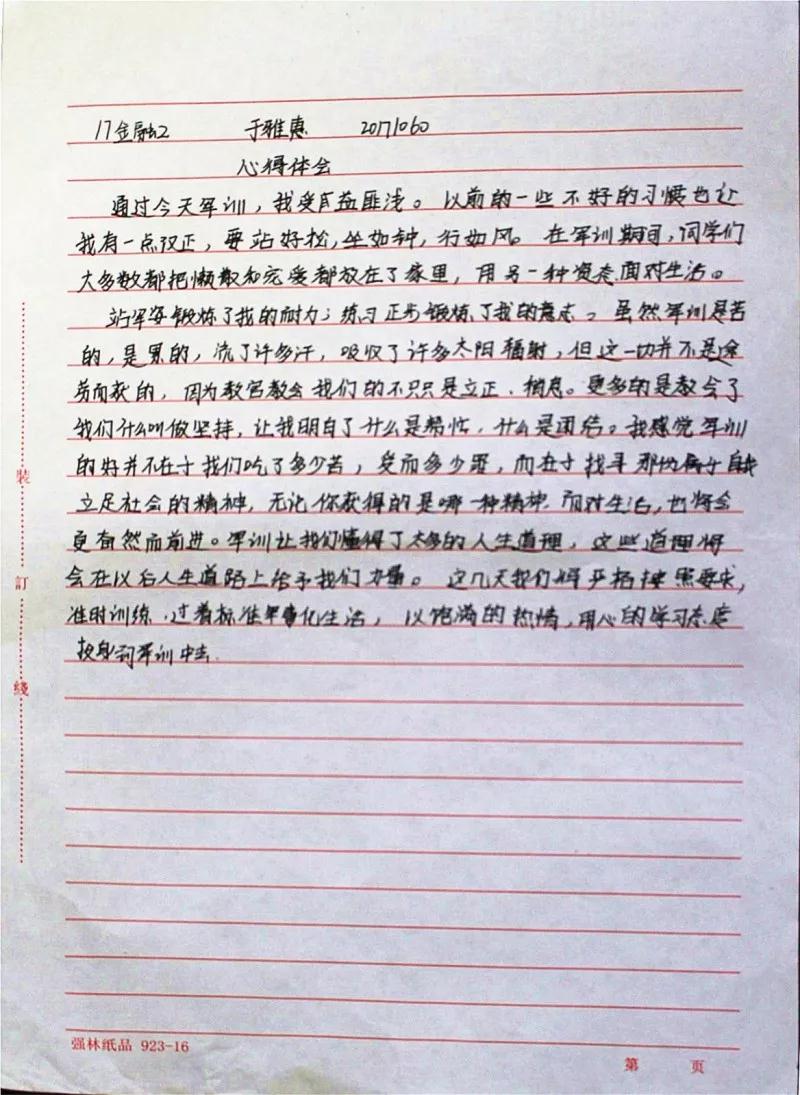 17金融2 于雅惠 20171060
心得体会
通过今天军训，我受益匪浅。以前的一些不好的习惯也让
我有一点改正，要站好松，坐如钟，行如风。在军训期间，同学们
大多数都把懒散和宠爱都放在了家里，用另一种姿态面对生活。
站军姿锻炼了我的耐力；练习正步锻炼了我的意志。虽然军训是苦
的，是累的，流了许多汗，吸收了许多太阳辐射，但这一切并不是
劳而获的，因为教官教会我们的不只只是立正、稍息。更多的是教会了
我们什么叫做坚持，让我明白了什么是帮忙，什么是团结。我感觉军训
的好并不在于我们吃了多少苦，受而多少罪，而在于找寻那份属于自我
立足社会的精神，无论你获得的是哪一种精神，面对生活，也将会
更奋然而前进。军训让我们懂得了太多的人生道理，这些道理将
会在以后人生道路上给予我们力量。这几天我们将严格按照要求，
准时训练，过着标准军事化生活，以饱满的热情，用心的学习态度
投身到军训中去.
裝
訂
綫
强林纸品 923-16
第 页